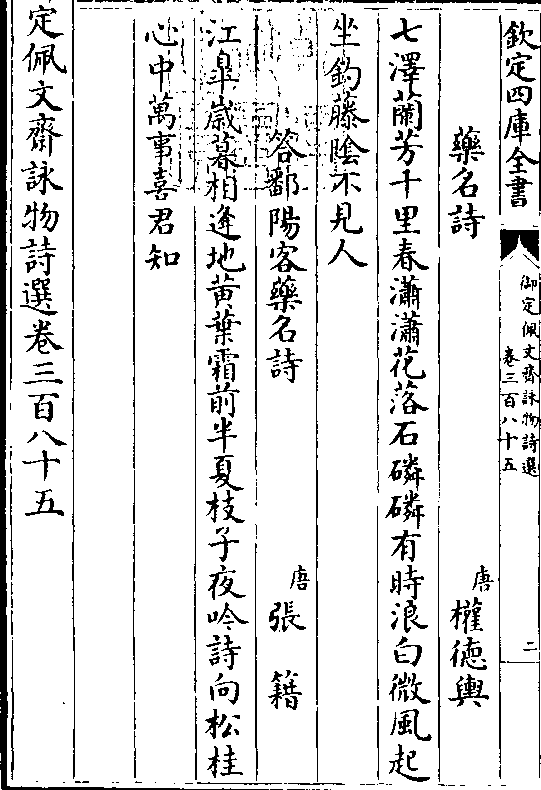 欽定四庫全書
御定佩文齋詠物詩選
卷三百八十五
二
藥名詩 唐 權德輿
七澤蘭芳千里春瀟瀟花落石磷磷有時浪白微風起
坐釣藤陰不見人
答鄱陽客藥名詩 唐 張籍
江臯歲暮相逢地黃葉霜前半夏枝子夜吟詩向松桂
心中萬事喜君知
定佩文齋詠物詩選卷三百八十五